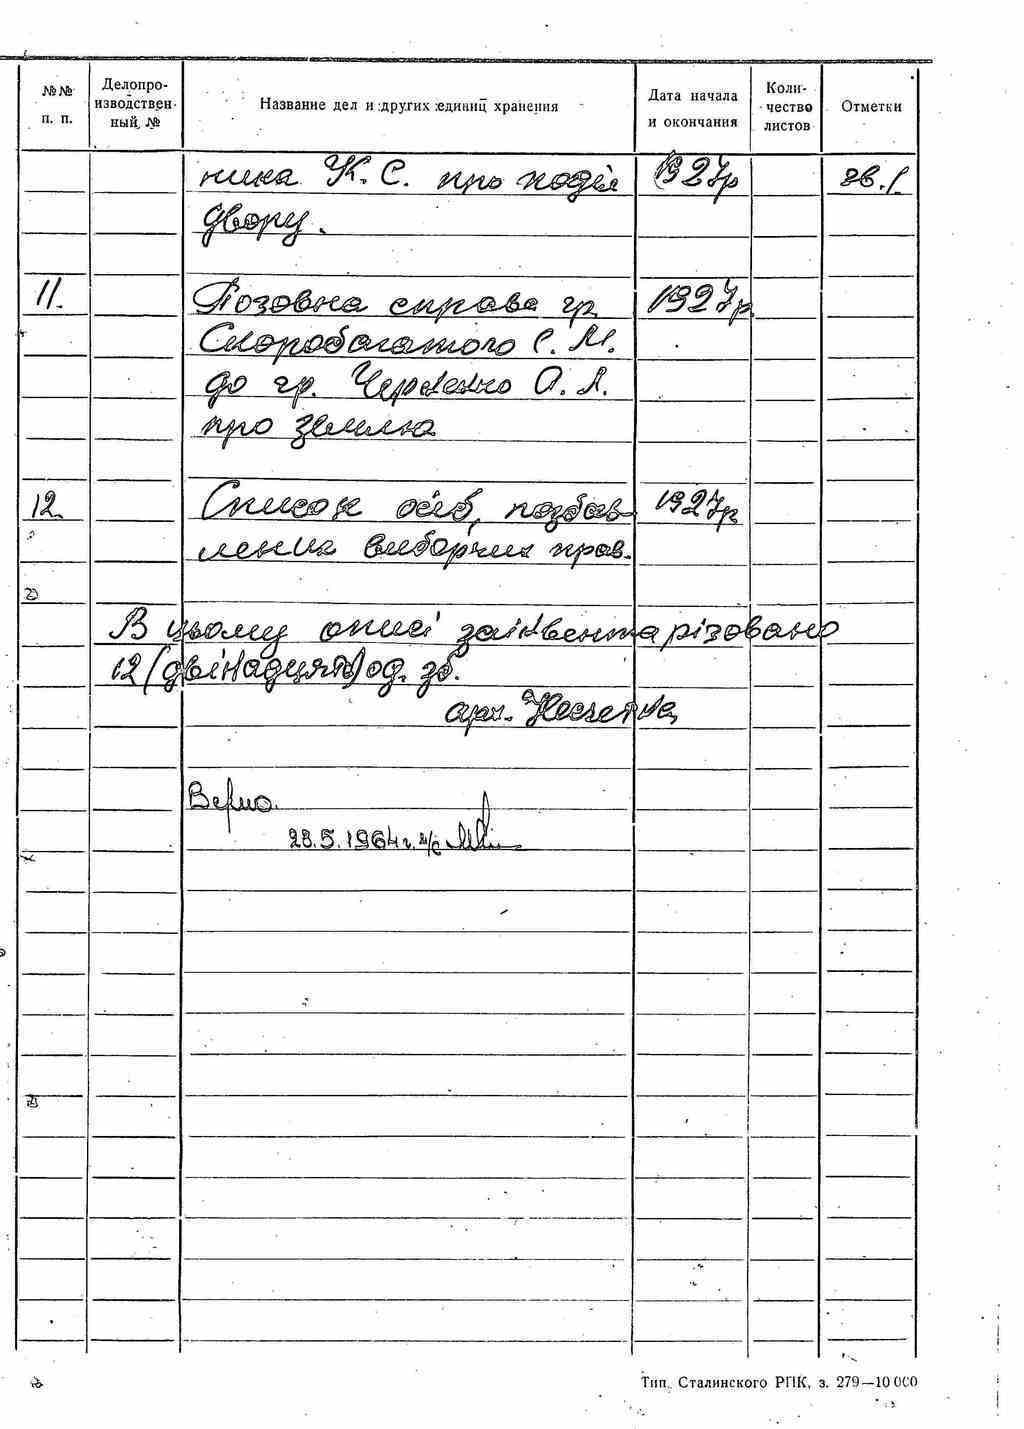 №№ п. п. Делопро-изводствен-ный № Название дел и других единиц хранения Дата начала и окончания Коли-чество листов Отметки
ника К. С. про поділ 1927р зв. 1.
двору.
11. Позовна справа гр. 1927р.
Скоробагатого С. М.
до гр. Черненко О. Л.
про землю
12. Список осіб, позбав- 1927р
лених виборчих прав.
В цьому описі заінвентарізовано
12 (двінадцять) од. зб.
арх.
Верно.
28.5.1964 г.
Тип. Сталинского РПК, з. 279—10 000